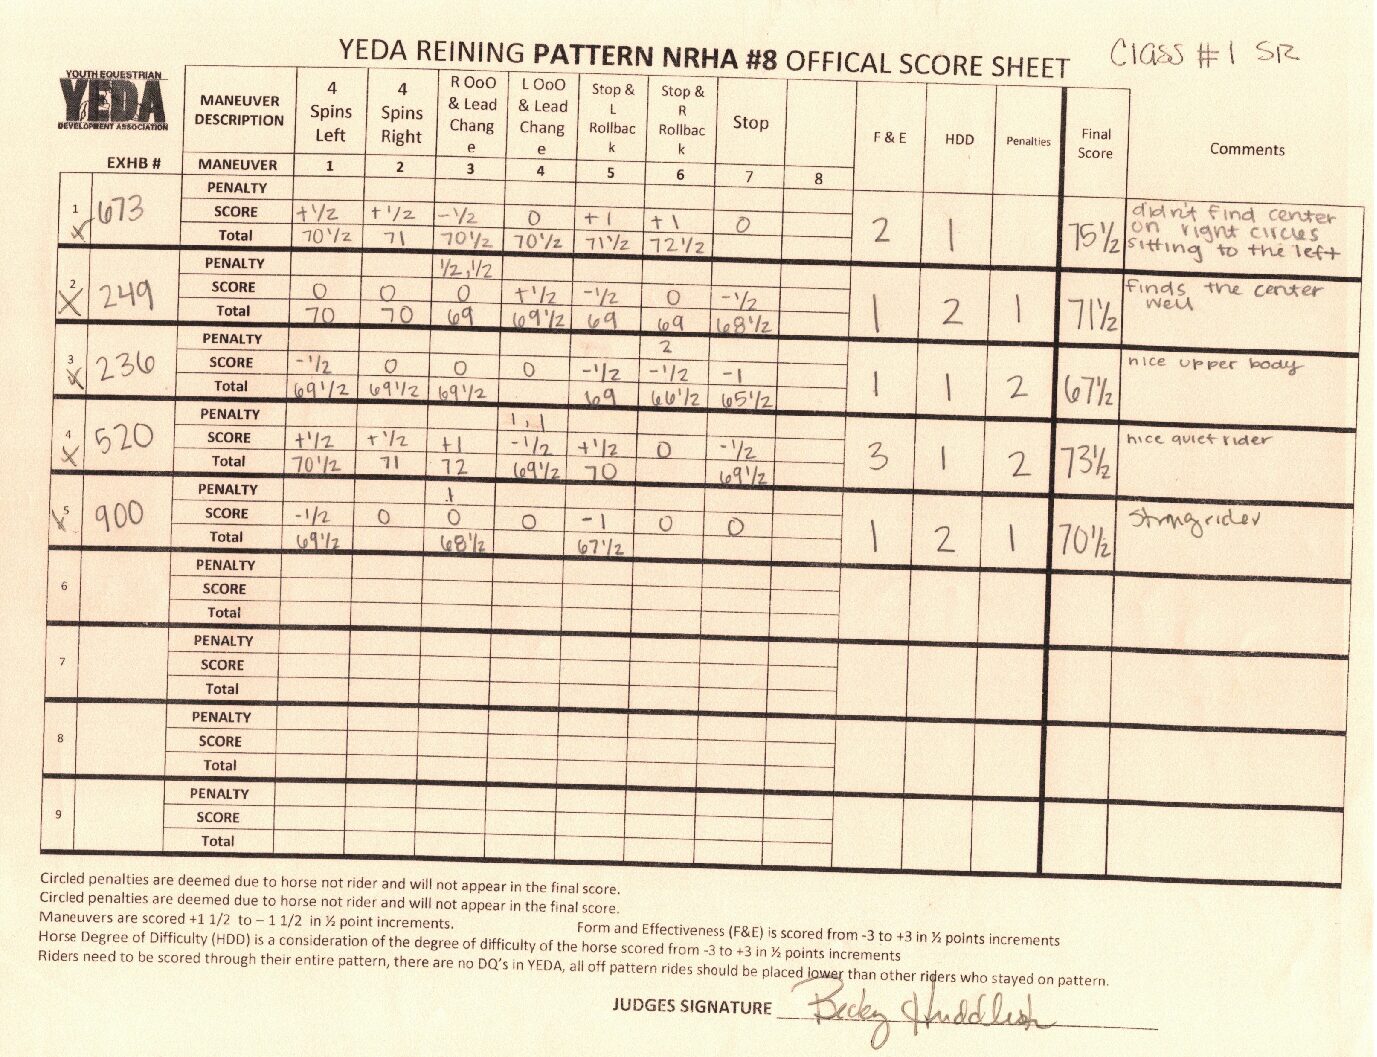 YEDA REINING PATTERN NRHA #8 OFFICAL SCORE SHEET
Class #1 SR
YOUTH EQUESTRIAN
YEDA
DEVELOPMENT ASSOCIATION
EXHB #
MANEUVER DESCRIPTION 4 Spins Left 4 Spins Right R OoO & Lead Chang e L OoO & Lead Chang e Stop & L Rollbac k Stop & R Rollbac k Stop F & E HDD Penalties Final Score Comments
MANEUVER 1 2 3 4 5 6 7 8
1 673
PENALTY
SCORE +1/2 +1/2 -1/2 0 +1 +1 0
Total 70 1/2 71 70 1/2 70 1/2 71 1/2 72 1/2
2 1 75 1/2
didn't find center
on right circles
sitting to the left
2 249
PENALTY 1/2, 1/2
SCORE 0 0 0 +1/2 -1/2 0 -1/2
Total 70 70 69 69 1/2 69 69 68 1/2
1 2 1 71 1/2
finds the center
well
3 236
PENALTY 2
SCORE -1/2 0 0 0 -1/2 -1/2 -1
Total 69 1/2 69 1/2 69 1/2 69 66 1/2 65 1/2
1 1 2 67 1/2
nice upper body
4 520
PENALTY 1, 1
SCORE +1/2 +1/2 +1 -1/2 +1/2 0 -1/2
Total 70 1/2 71 72 69 1/2 70 69 1/2
3 1 2 73 1/2
nice quiet rider
5 900
PENALTY 1
SCORE -1/2 0 0 0 -1 0 0
Total 69 1/2 68 1/2 67 1/2
1 2 1 70 1/2
Strong rider
6
PENALTY
SCORE
Total
7
PENALTY
SCORE
Total
8
PENALTY
SCORE
Total
9
PENALTY
SCORE
Total
Circled penalties are deemed due to horse not rider and will not appear in the final score.
Circled penalties are deemed due to horse not rider and will not appear in the final score.
Maneuvers are scored +1 1/2 to – 1 1/2 in ½ point increments. Form and Effectiveness (F&E) is scored from -3 to +3 in ½ points increments
Horse Degree of Difficulty (HDD) is a consideration of the degree of difficulty of the horse scored from -3 to +3 in ½ points increments
Riders need to be scored through their entire pattern, there are no DQ's in YEDA, all off pattern rides should be placed lower than other riders who stayed on pattern.
JUDGES SIGNATURE Becky Huddleston